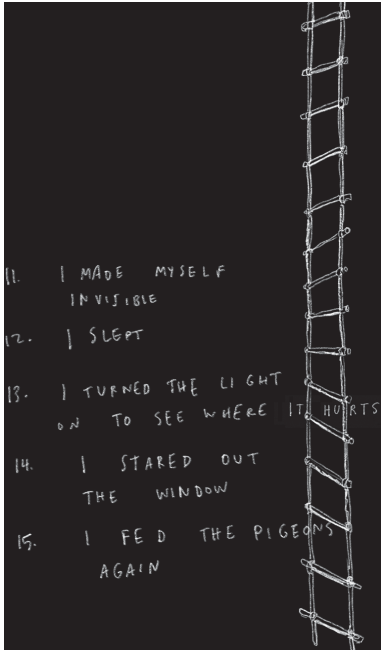 11. I MADE MYSELF
INVISIBLE
12. I SLEPT
13. I TURNED THE LIGHT
ON TO SEE WHERE IT HURTS
14. I STARED OUT
THE WINDOW
15. I FED THE PIGEONS
AGAIN